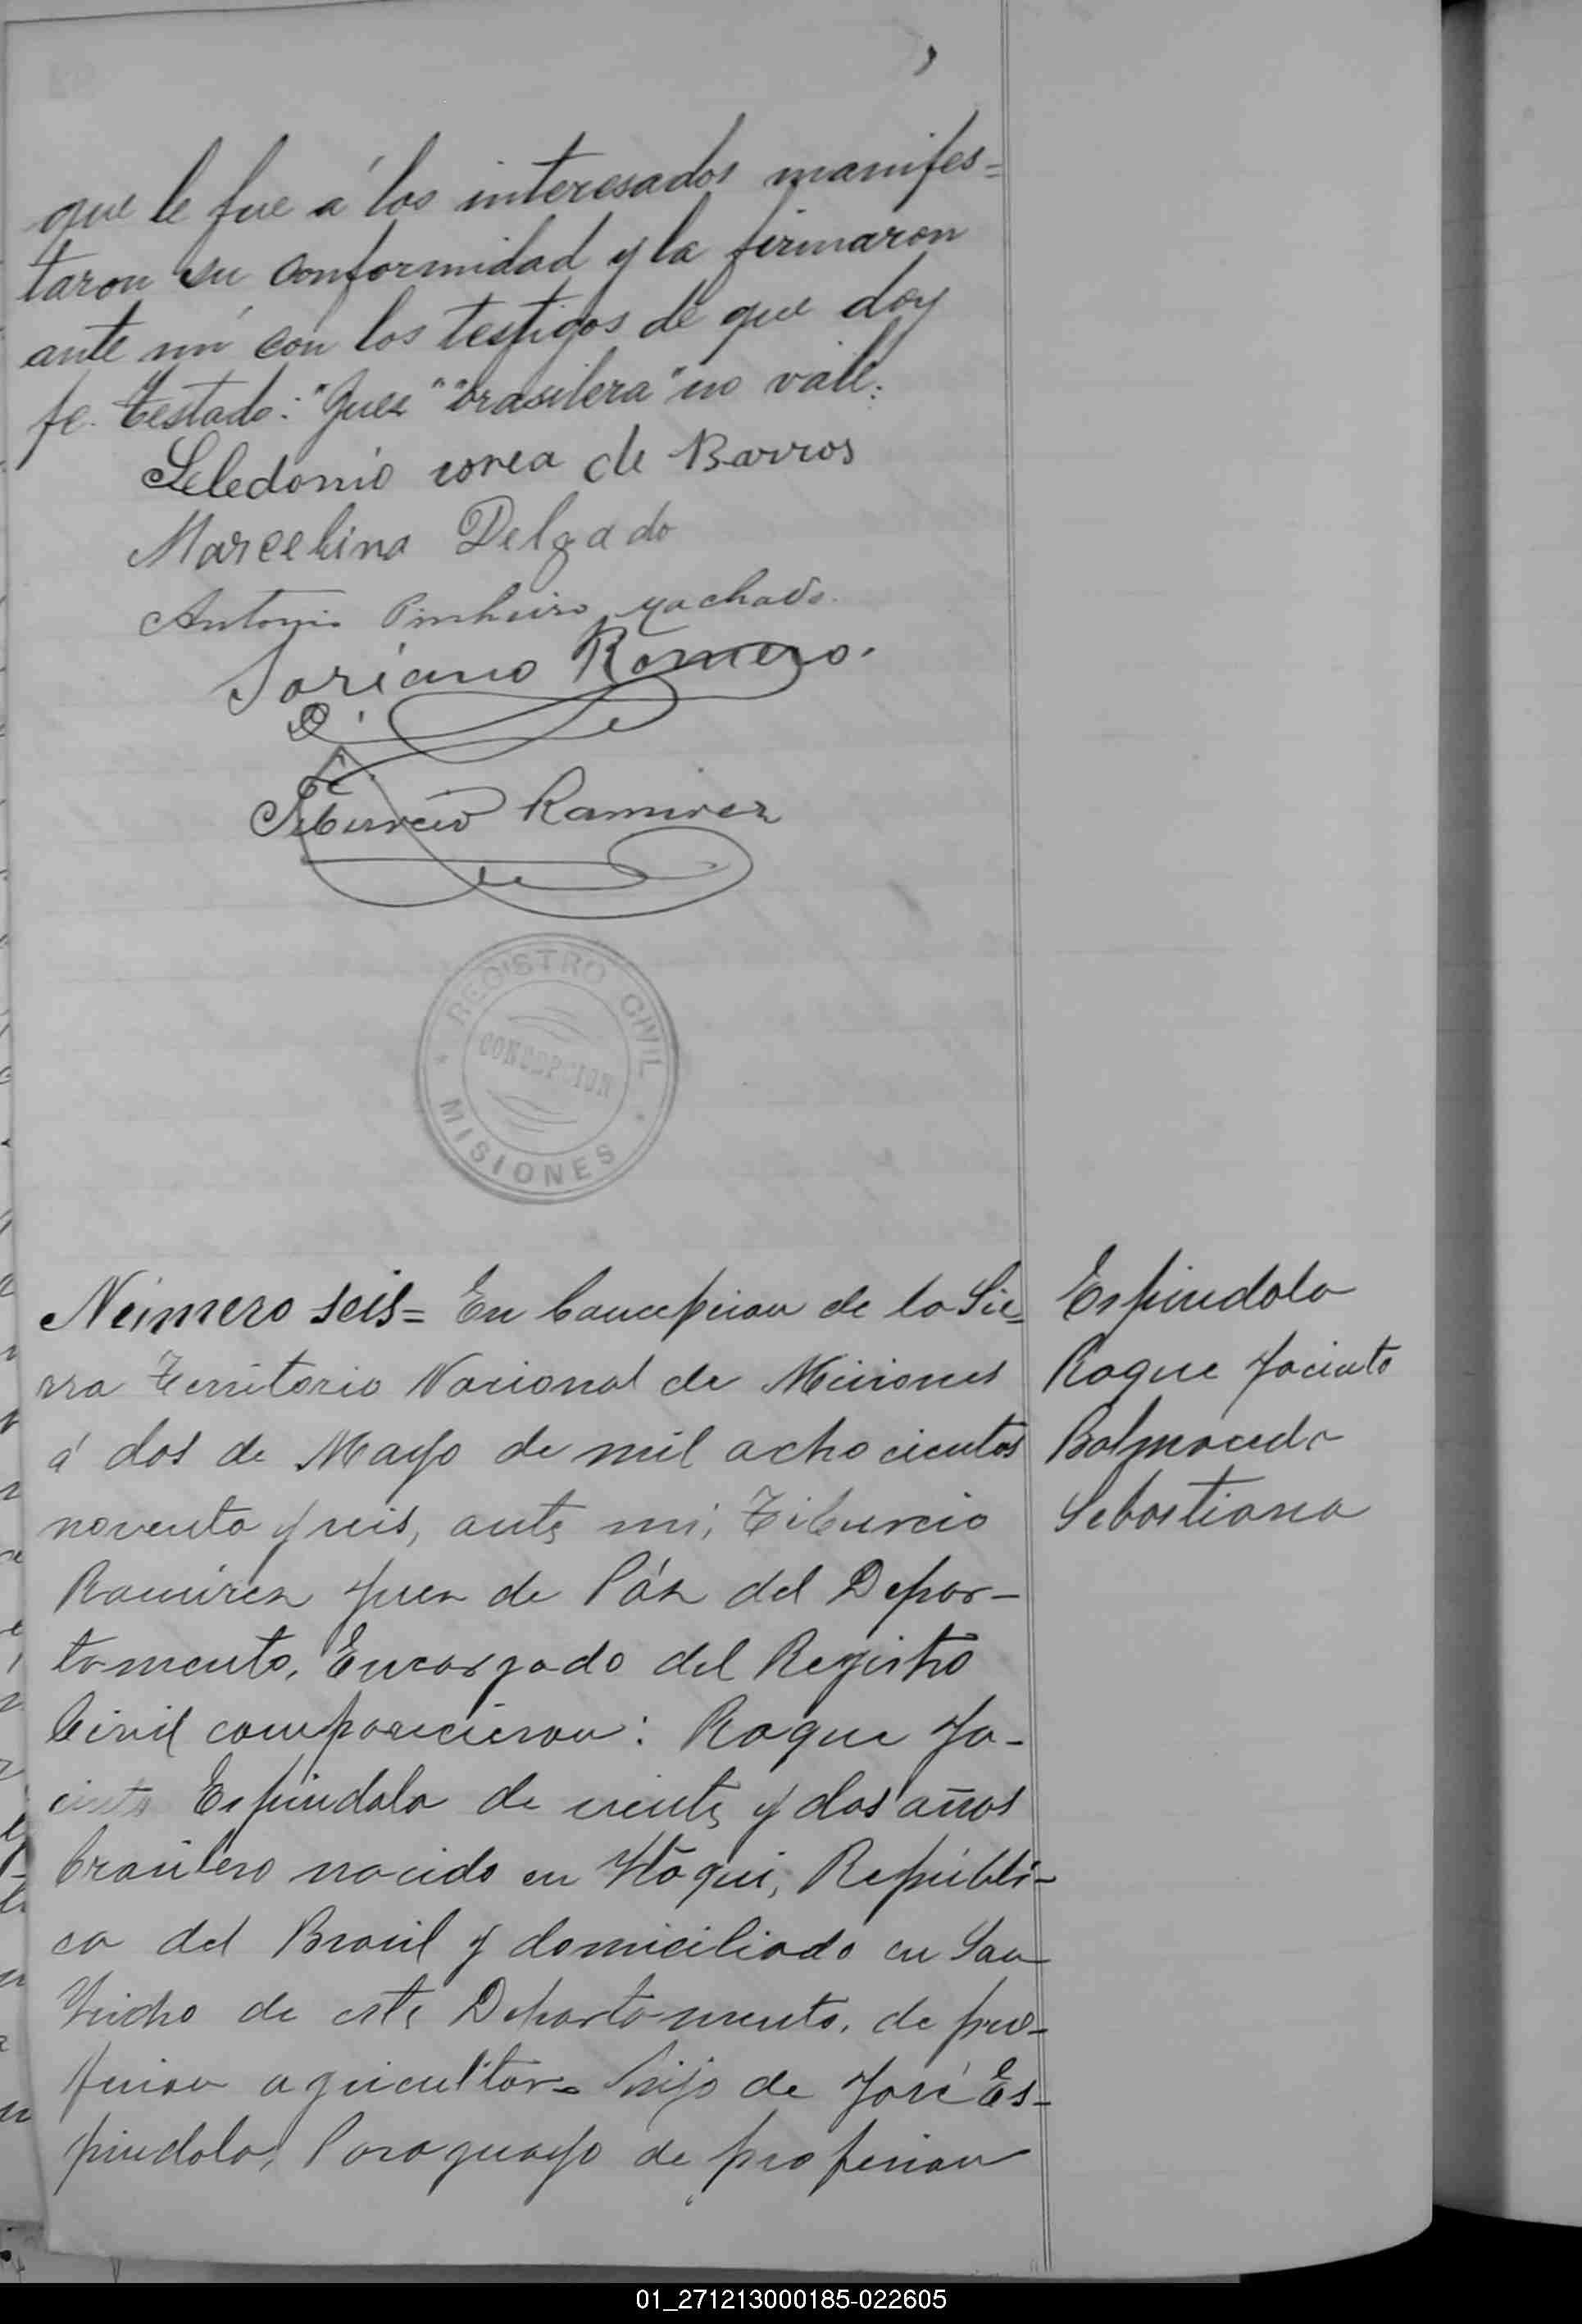 que le fue á los interesados manifes=
taron su conformidad y la firmaron
ante mi con los testigos de que doy
fe. Testado: "Juez" "brasilera" no vale:
Seledonio correa de Barros
Marcelina Delgado
Antonio Pinheiro Machado.
Soriano Romero.
Tiburcio Ramirez
REGISTRO CIVIL
CONCEPCION
MISIONES
Número seis= En Concepcion de la Sie=
rra Territorio Nacional de Misiones
á dos de Mayo de mil ochocientos
noventa y seis, ante mi, Tiburcio
Ramirez Juez de Páz del Depar-
tamento, Encargado del Registro
Civil comparecieron: Roque Ja-
cinto Espindola de veinte y dos años
brasilero nacido en Itaqui, Repúbli-
ca del Brasil y domiciliado en San
Isidro de este Departamento, de pro-
fesion agricultor= hijo de José Es-
pindola, Paraguayo de profesion
Espindola
Roque Jacinto
Balmaceda
Sebastiana
01_271213000185-022605